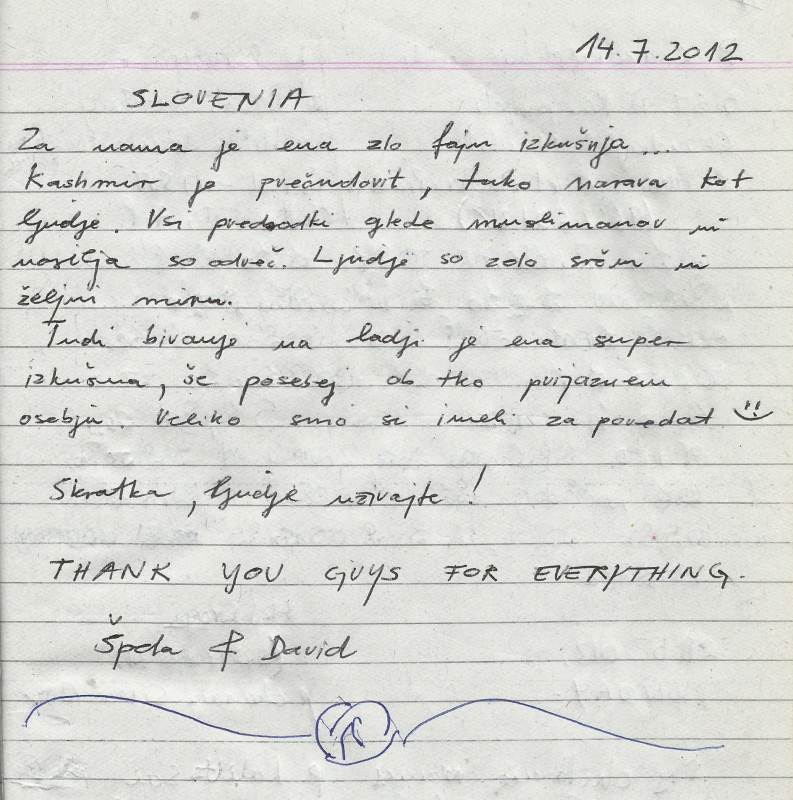 14.7.2012
SLOVENIA
Za nama je ena zlo fajn izkušnja...
Kashmir je prečudovit, tako narava kot
ljudje. Vsi predsodki glede muslimanov in
nasilja so odveč. Ljudje so zolo srčni in
željni miru.
Tudi bivanje na ladji je ena super
izkušna, še posebej ob tko prijaznem
osebju. Veliko smo si imeli za povedat
Skratka, ljudje uživajte!
THANK YOU GUYS FOR EVERYTHING.
Špela & David